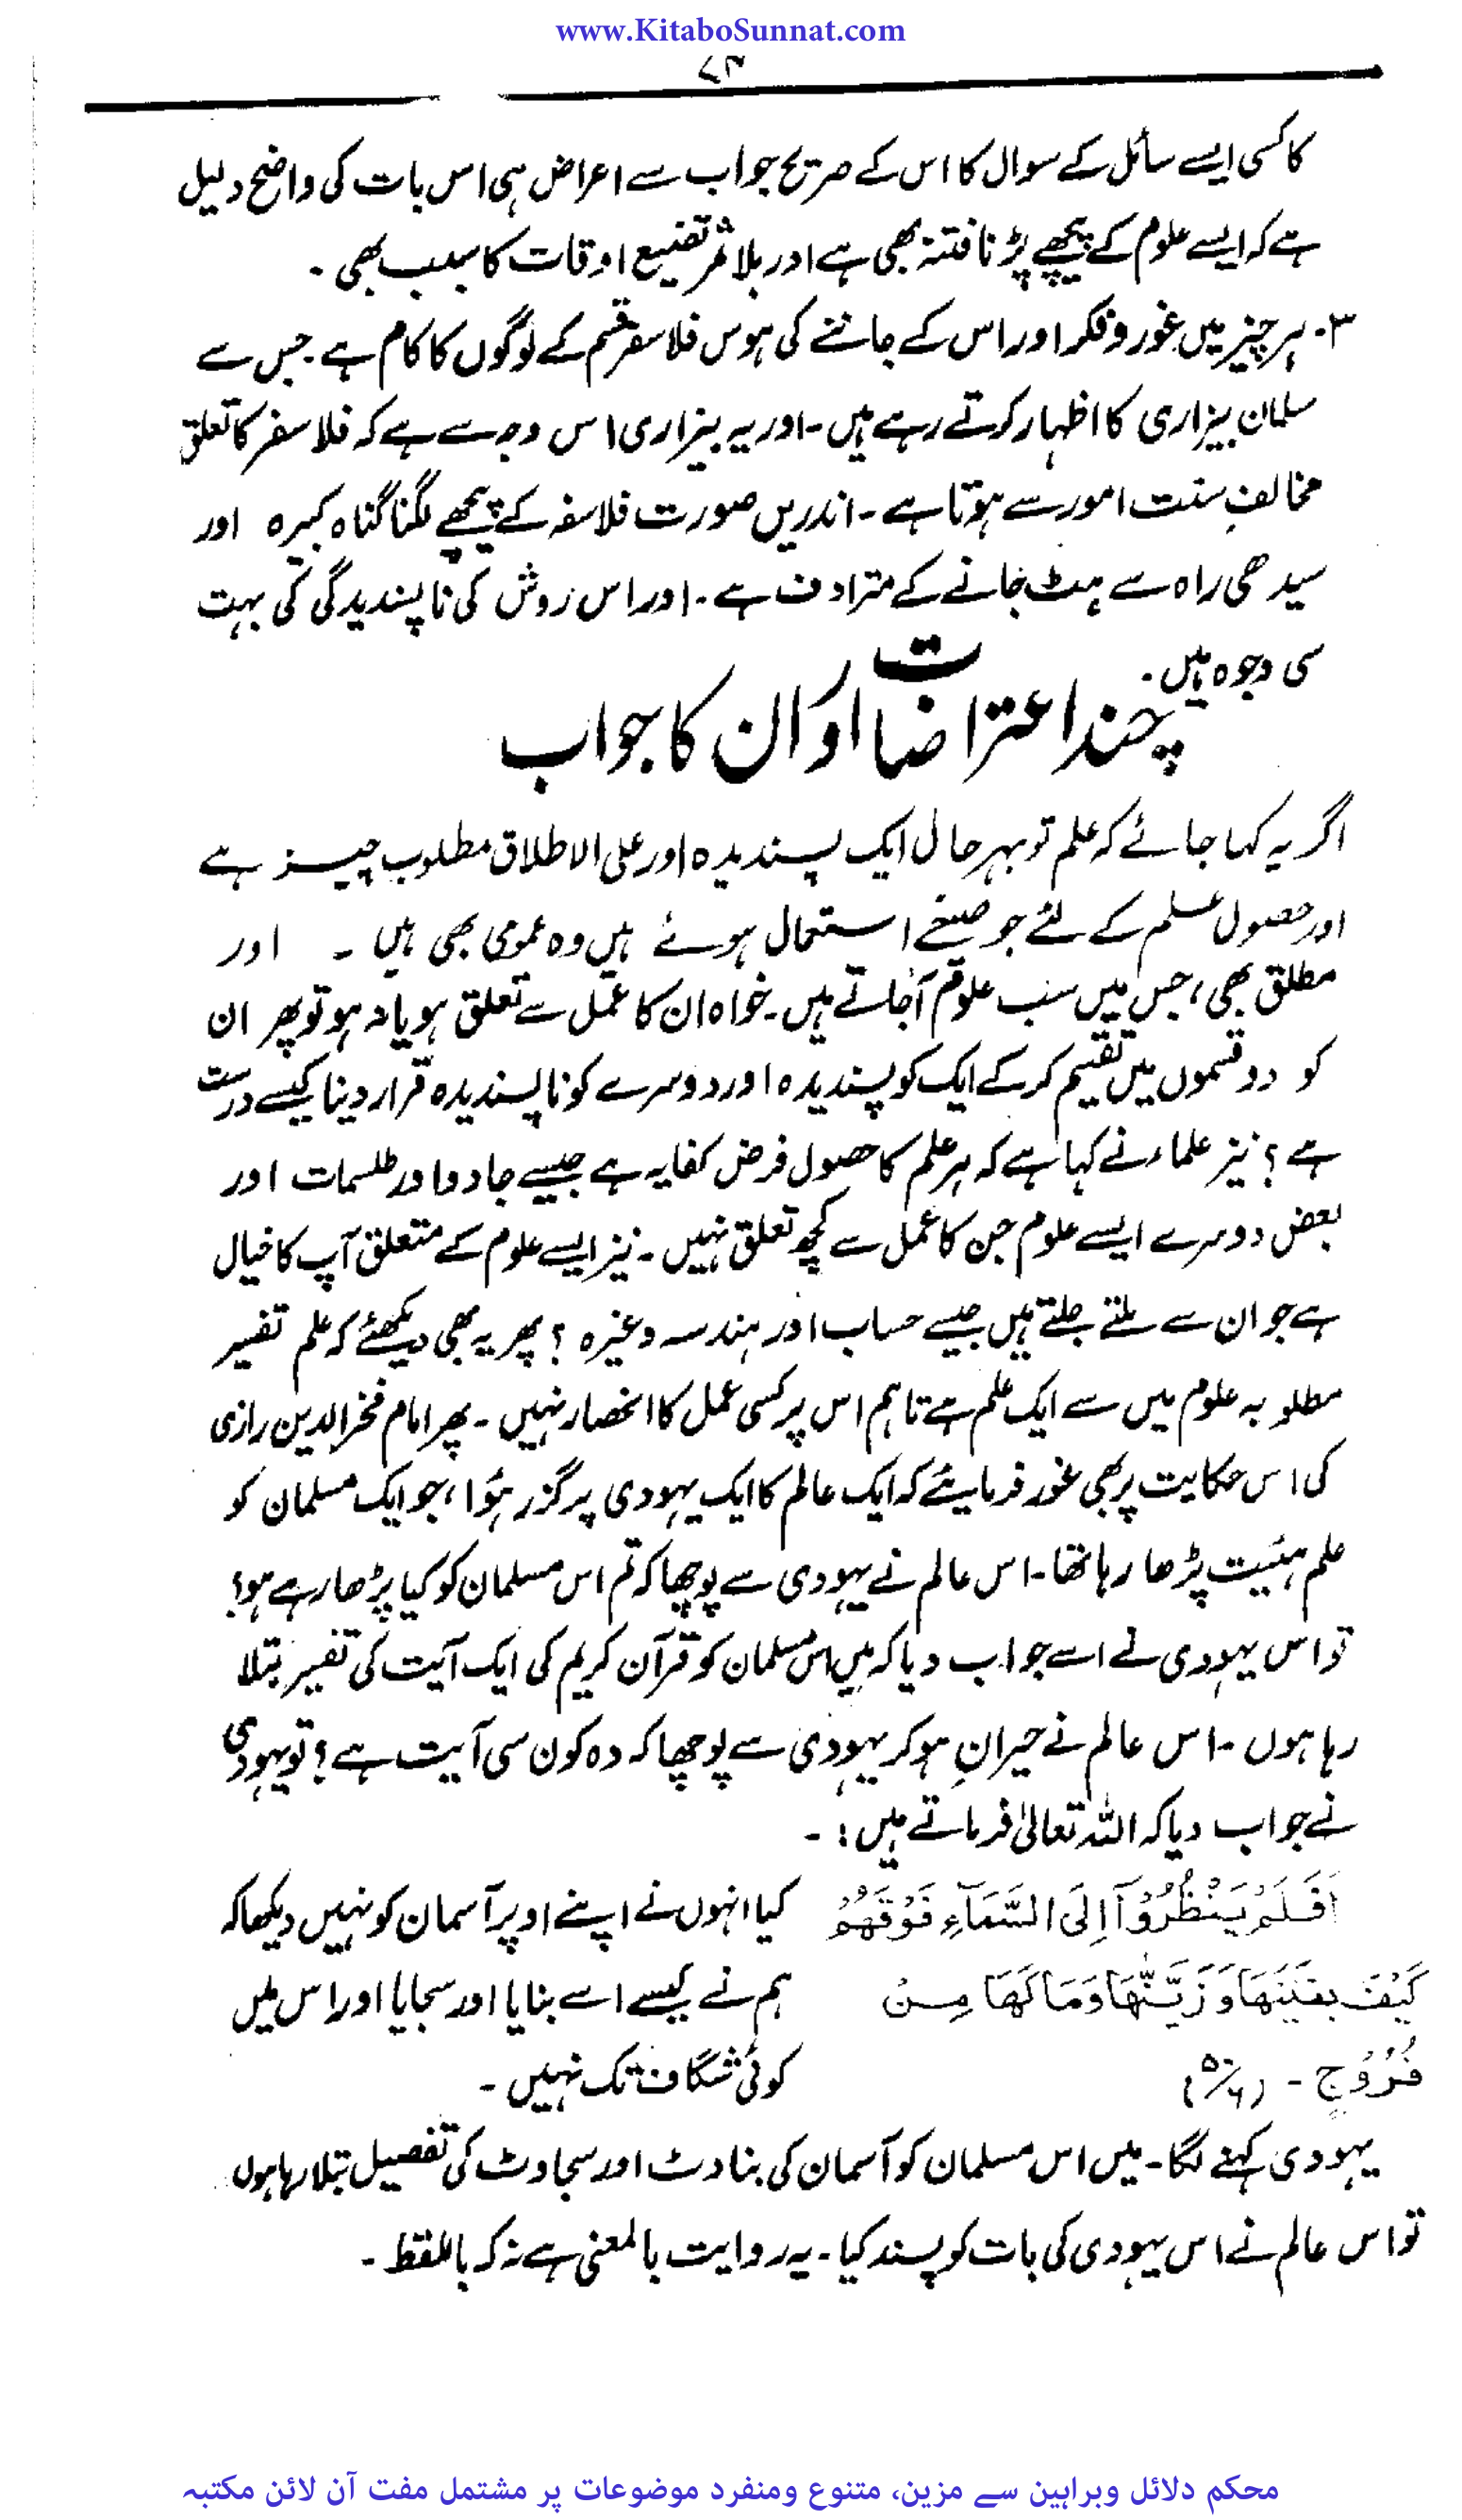 www.KitaboSunnat.com
۷۳
کا کسی ایسے سائل کے سوال کا اس کے صریح جواب سے اعراض ہی اس بات کی واضح دلیل
ہے کہ ایسے علوم کے پیچھے پڑنا فتنہ بھی ہے اور بلا ثمر تضیع اوقات کا سبب بھی ۔
۳۔ ہر چیز میں غور و فکر اور اس کے جاننے کی ہوس فلاسفر قسم کے لوگوں کا کام ہے ۔ جس سے
سلمان بیزاری کا اظہار کرتے رہے ہیں ۔ اور یہ بیزاری اس وجہ سے ہے کہ فلاسفر کا تعلق
مخالفِ سنت امور سے ہوتا ہے ۔ اندریں صورت فلاسفہ کے پیچھے لگنا گناہ کبیرہ اور
سیدھی راہ سے ہٹ جانے کے مترادف ہے ۔ اور اس روش کی ناپسندیدگی کی بہت
سی وجوہ ہیں ۔
چند اعتراضات اور ان کا جواب
اگر یہ کہا جائے کہ علم تو بہر حال ایک پسندیدہ اور علی الاطلاق مطلوب چیز ہے
اور حصول علم کے لئے جو صیغے استعمال ہوئے ہیں وہ عمومی بھی ہیں ۔ اور
مطلق بھی ، جس میں سب علوم آجاتے ہیں ۔ خواہ ان کا عمل سے تعلق ہو یا نہ ہو تو پھر ان
کو دو قسموں میں تقسیم کر کے ایک کو پسندیدہ اور دوسرے کو ناپسندیدہ قرار دینا کیسے درست
ہے ؟ نیز علماء نے کہا ہے کہ ہر علم کا حصول فرض کفایہ ہے جیسے جادو اور طلسمات اور
بعض دوسرے ایسے علوم جن کا عمل سے کچھ تعلق نہیں ۔ نیز ایسے علوم کے متعلق آپ کا خیال
ہے جو ان سے ملتے جلتے ہیں جیسے حساب اور ہندسہ وغیرہ ؟ پھر یہ بھی دیکھئے کہ علم تفسیر
مطلوبہ علوم میں سے ایک علم ہے تاہم اس پر کسی عمل کا انحصار نہیں ۔ پھر امام فخرالدین رازی
کی اس حکایت پر بھی غور فرمایئے کہ ایک عالم کا ایک یہودی پر گزر ہؤا ، جو ایک مسلمان کو
علم ہئیت پڑھا رہا تھا ۔ اس عالم نے یہودی سے پوچھا کہ تم اس مسلمان کو کیا پڑھا رہے ہو ؟
تو اس یہودی نے اسے جواب دیا کہ میں اس مسلمان کو قرآن کریم کی ایک آیت کی تفسیر بتلا
رہا ہوں ۔ اس عالم نے حیران ہو کر یہودی سے پوچھا کہ وہ کون سی آیت ہے ؟ تو یہودی
نے جواب دیا کہ اللہ تعالیٰ فرماتے ہیں : ۔
اَفَلَمْ يَنْظُرُوْٓا اِلَى السَّمَآءِ فَوْقَهُمْ کیا انہوں نے اپنے اوپر آسمان کو نہیں دیکھا کہ
كَيْفَ بَنَيْنٰهَا وَزَيَّنّٰهَا وَمَا لَهَا مِنْ ہم نے کیسے اسے بنایا اور سجایا اور اس میں
فُرُوْجٍ ۔ (۵۰/۶) کوئی شگاف تک نہیں ۔
یہودی کہنے لگا ۔ میں اس مسلمان کو آسمان کی بناوٹ اور سجاوٹ کی تفصیل بتلا رہا ہوں
تو اس عالم نے اس یہودی کی بات کو پسند کیا ۔ یہ روایت بالمعنی ہے نہ کہ باللفظ ۔
محکم دلائل وبراہین سے مزین، متنوع ومنفرد موضوعات پر مشتمل مفت آن لائن مکتبہ